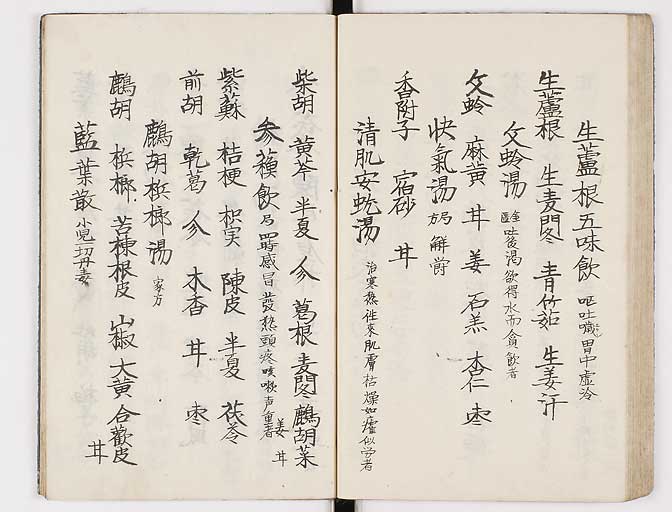 生蘆根五味飲 嘔吐噦胃中虚冷
生蘆根 生麦門冬 青竹茹 生姜汁
文蛤湯 吐後渇欲得水而貪飲者
文蛤 麻黄 甘 姜 石羔 杏仁 枣
快氣湯 局方 解欝
香附子 宿砂 甘
清肌安蚘湯 治寒熱往来肌膚枯燥如瘧似労者
柴胡 黄芩 半夏 参 葛根 麦門冬 鷓胡菜 姜 甘
参蘓飲 局 四時感冒發熱頭疼咳嗽声重者
紫蘓 桔梗 枳実 陳皮 半夏 茯苓
前胡 乾葛 参 木香 甘 枣
鷓胡梹榔湯 家方
鷓胡 梹榔 苦楝根皮 山椒 大黄 合歡皮 甘
藍葉散 小児切丹毒